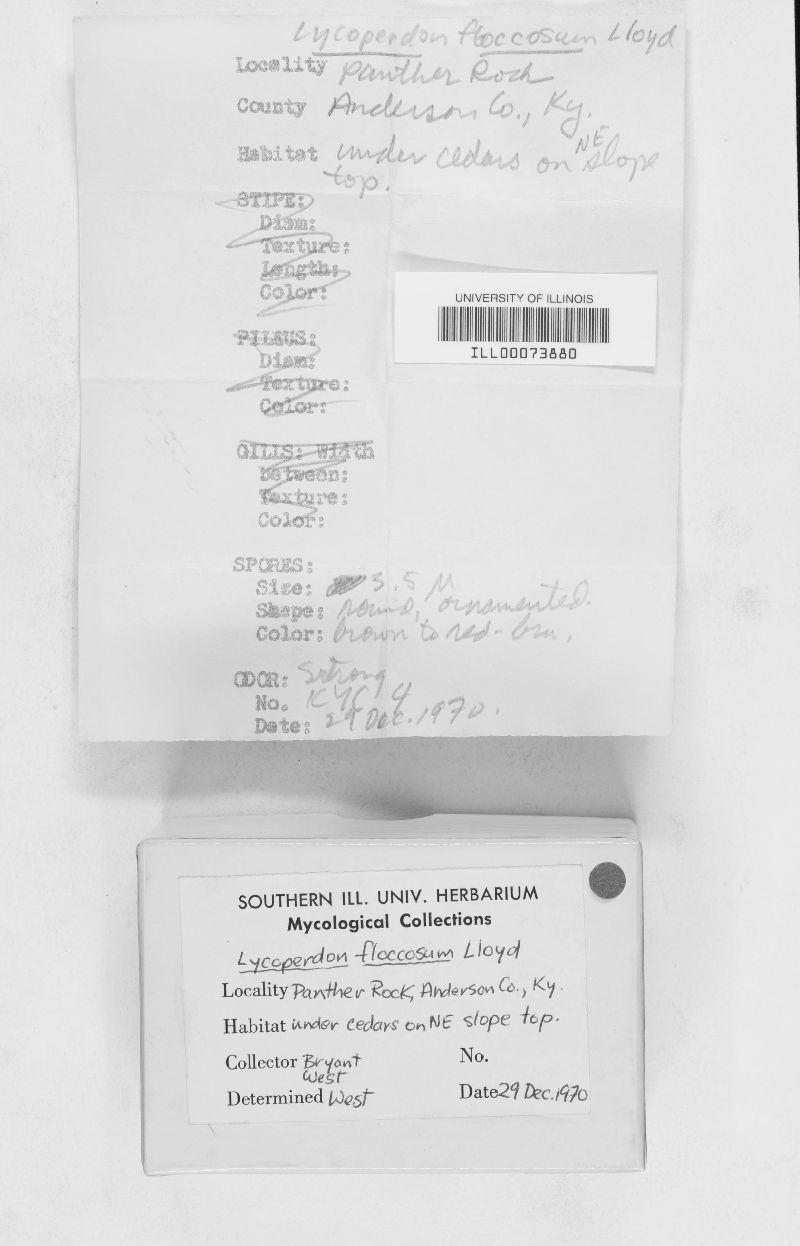 Lycoperdon floccosum Lloyd
Locality Panther Rock
County Anderson Co., Ky.
Habitat under cedars on NE slope
top.
STIPE:
Diam:
Texture:
Length:
Color:
UNIVERSITY OF ILLINOIS
ILL00073880
PILEUS:
Diam:
Texture:
Color:
GILLS: Width
between:
Texture:
Color:
SPORES:
Size: 3.5 M
Shape: round, ornamented.
Color: brown to red-brn.
ODOR: Strong
No. KYC 4
Date: 29 Dec. 1970.
SOUTHERN ILL. UNIV. HERBARIUM
Mycological Collections
Lycoperdon floccosum Lloyd
Locality Panther Rock, Anderson Co., Ky.
Habitat under cedars on NE slope top.
Collector Bryant No.
West
Determined West Date 29 Dec. 1970